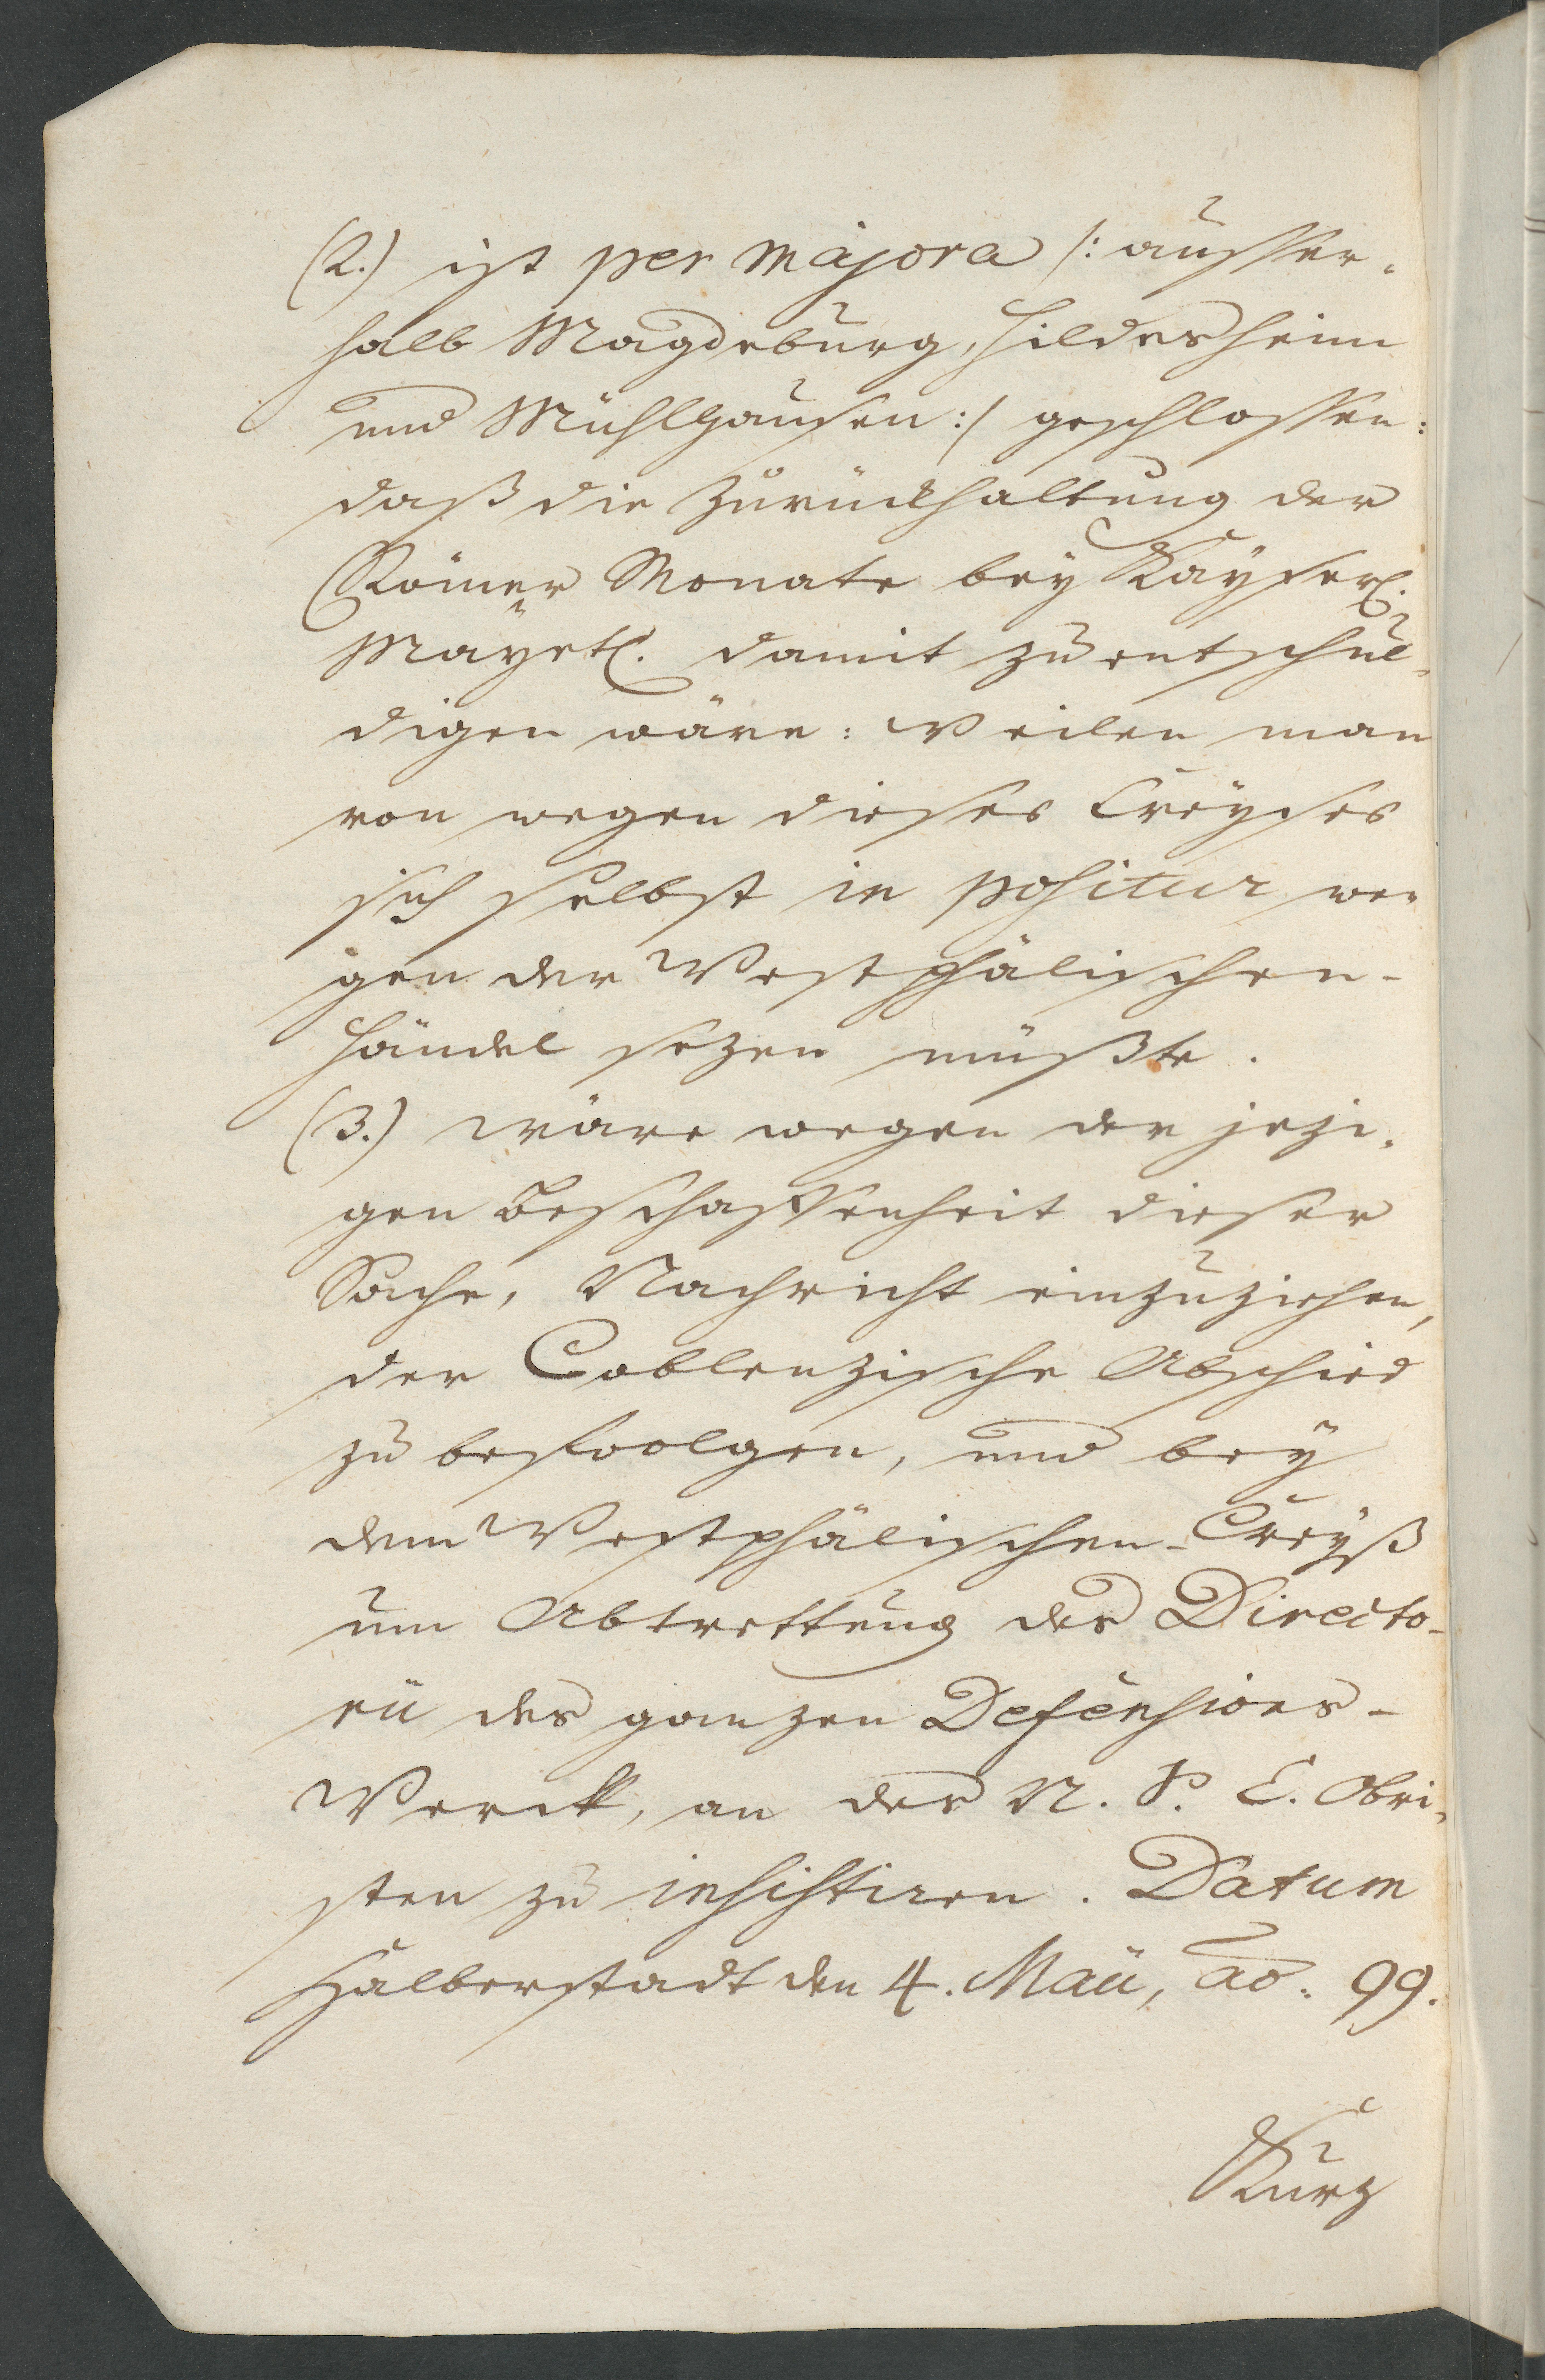 (2.) ist per majora /: ausser-
halb Magdeburg, Hildesheim
und Mühlhausen :/ geschlossen:
daß die Zurückhaltung der
Römer Monate bey Kayserl.
Mayetl. damit zu entschul-
digen wäre: Weilen man
von wegen dieses Creyses
sich selbst in positur we-
gen der Westphälischen-
Händel sezen müßte.
(3.) wäre wegen der jezi-
gen Beschaffenheit dieser
Sache, Nachricht einzuziehen,
der Coblenzische Abschied
zu befoolgen, und bey
dem Westphälischen-Creyß
um Abtrettung des Directo-
rii des ganzen Defensions-
Werck, an des N. S. C. Obri-
sten zu insistiren. Datum
Halberstadt den 4. Maii, ao. 99.
Kurz